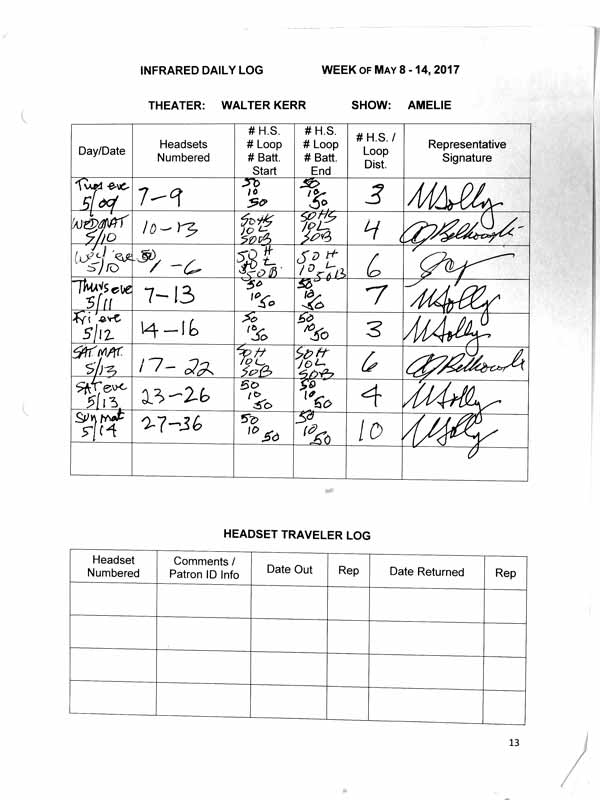 INFRARED DAILY LOG WEEK OF MAY 8 - 14, 2017
THEATER: WALTER KERR SHOW: AMELIE
Day/Date Headsets Numbered # H.S. # Loop # Batt. Start # H.S. # Loop # Batt. End # H.S. / Loop Dist. Representative Signature
Tues eve 5/09 7-9 50 10 50 50 10 50 3
WED MAT 5/10 10-13 50HS 10L 50B 50HS 10L 50B 4
Wed eve 5/10 1-6 50H 10L 50B 50H 10L 50B 6
Thurs eve 5/11 7-13 50 10 50 50 10 50 7
Fri eve 5/12 14-16 50 10 50 50 10 50 3
SAT. MAT. 5/13 17-22 50H 10L 50B 50H 10L 50B 6
SAT eve 5/13 23-26 50 10 50 50 10 50 4
Sun mat 5/14 27-36 50 10 50 50 10 50 10
HEADSET TRAVELER LOG
Headset Numbered Comments / Patron ID Info Date Out Rep Date Returned Rep
13